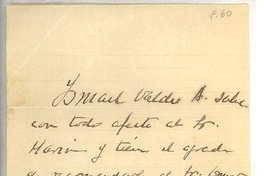 p. 60
Ismael Valdes V. saluda
con todo afecto al Sr.
Marin y tiene el agrado
de recomendar al Sr.